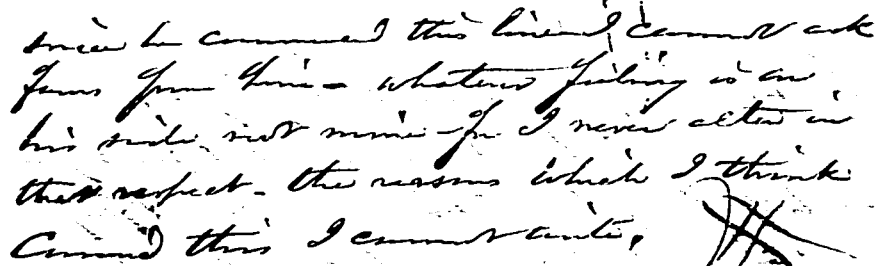 since he commenced this line I cannot ask
favors from him - whatever feeling is on
his side not mine - for I never alter in
that respect - the reasons which I think
Caused this I cannot write.